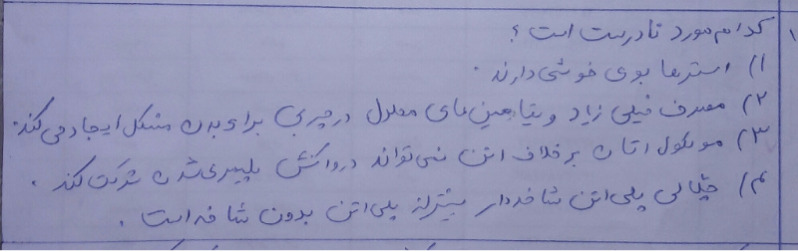 کدام مورد نادرست است؟
۱) استرها بوی خوشی دارند.
۲) مصرف خیلی زیاد ویتامین‌های محلول در چربی برای بدن مشکل ایجاد می‌کند.
۳) مولکول اتان برخلاف اتن نمی‌تواند در واکنش پلیمری شدن شرکت کند.
۴) چگالی پلی‌اتن شاخه‌دار بیشتر از پلی‌اتن بدون شاخه است.